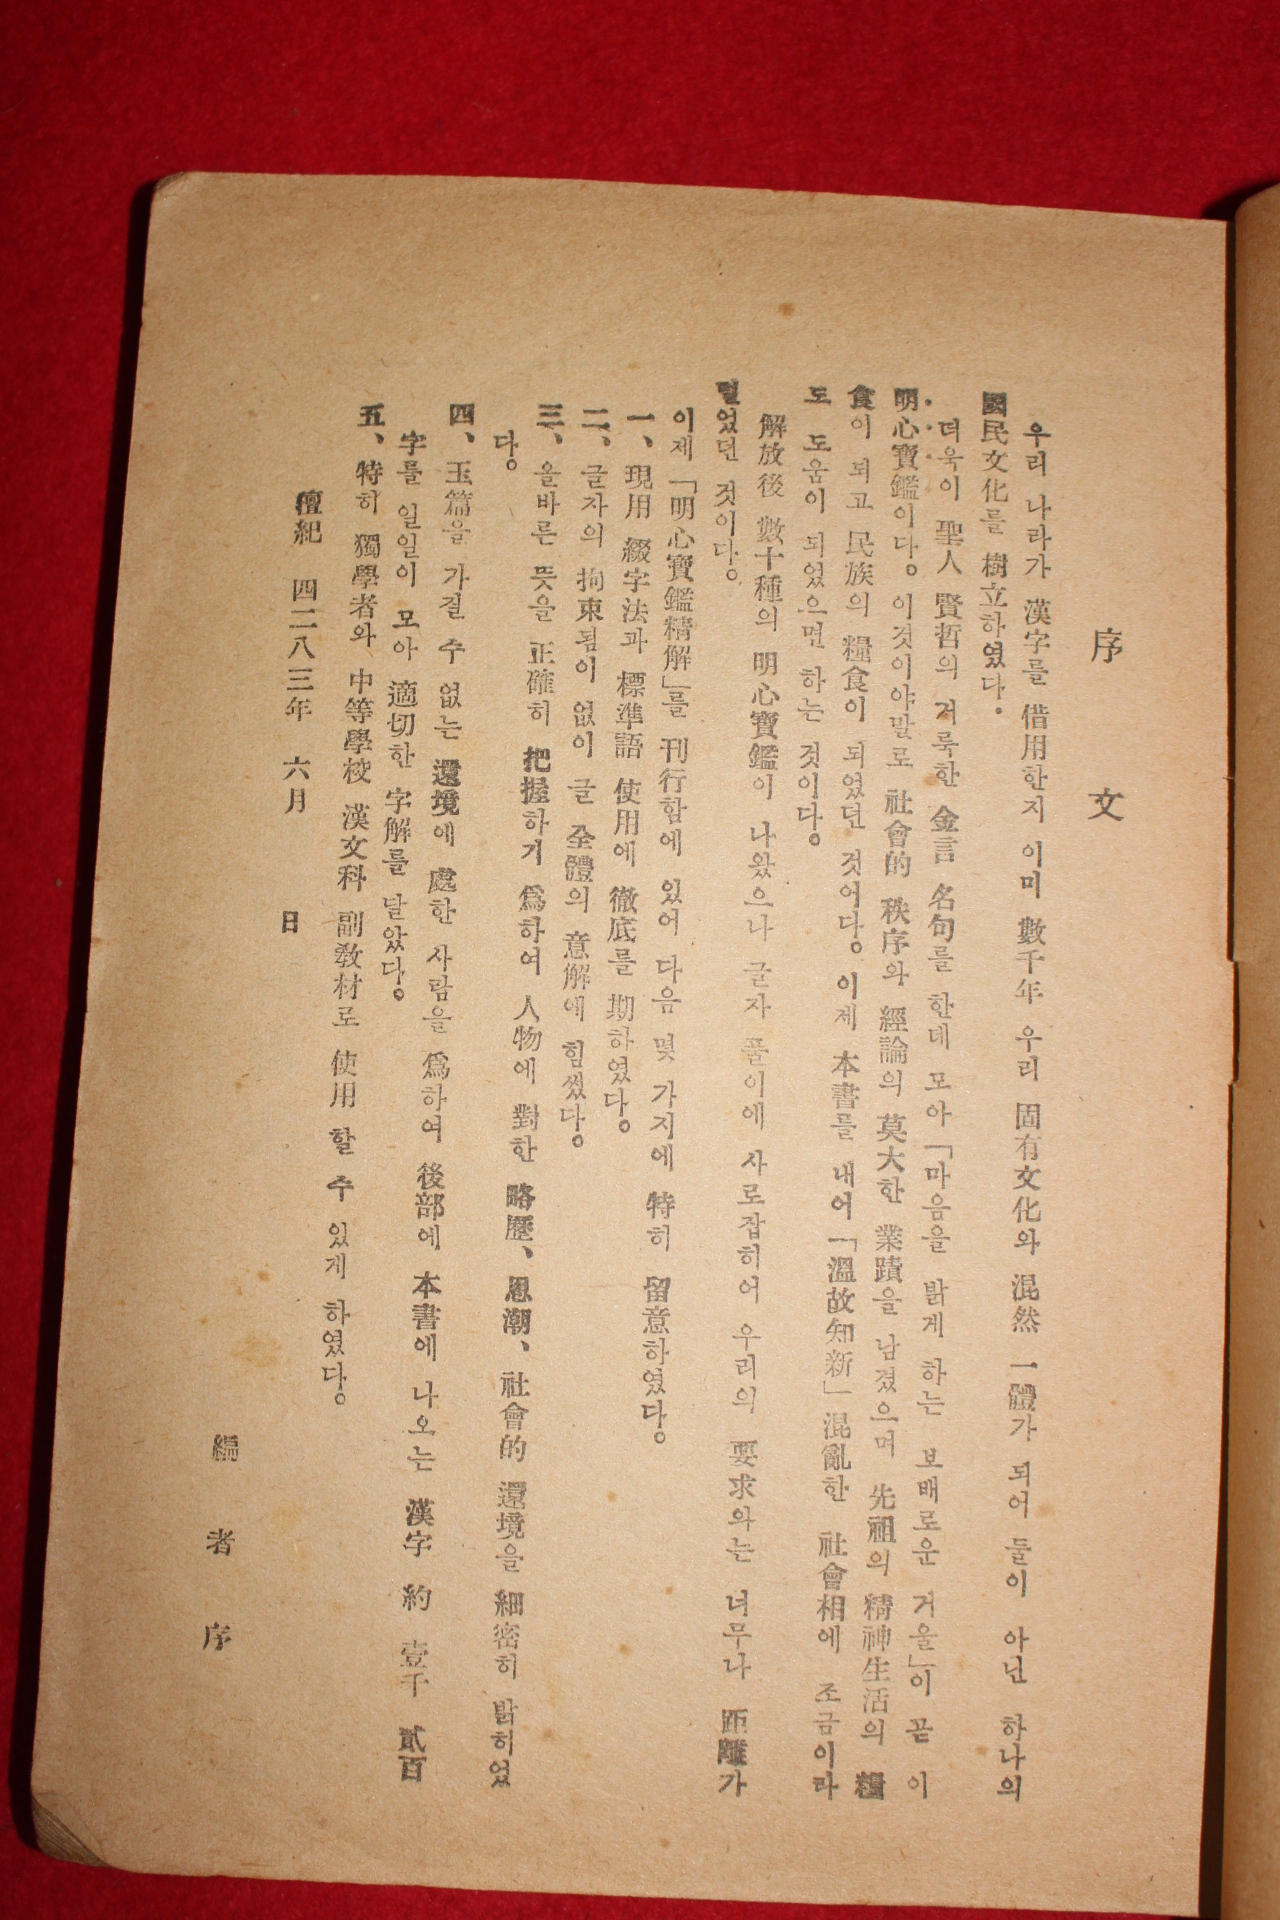 序文
우리 나라가 漢字를 借用한지 이미 數千年 우리 固有文化와 混然 一體가 되어 둘이 아닌 하나의
國民文化를 樹立하였다.
더욱이 聖人 賢哲의 거룩한 金言 名句를 한데 모아「마음을 밝게 하는 보배로운 거울」이 곧 이
明心寶鑑이다。이것이야말로 社會的 秩序와 經論의 莫大한 業蹟을 남겼으며 先祖의 精神生活의 糧
食이 되고 民族의 糧食이 되였던 것이다。이제 本書를 내어「溫故知新」混亂한 社會相에 조금이라
도 도움이 되었으면 하는 것이다。
解放後 數十種의 明心寶鑑이 나왔으나 글자 풀이에 사로잡히어 우리의 要求와는 너무나 距離가
멀었던 것이다。
이제「明心寶鑑精解」를 刊行함에 있어 다음 몇 가지에 特히 留意하였다。
一、現用 綴字法과 標準語 使用에 徹底를 期하였다。
二、글자의 拘束됨이 없이 글 全體의 意解에 힘썼다。
三、올바른 뜻을 正確히 把握하기 爲하여 人物에 對한 略歷、思潮、社會的 還境을 細密히 밝히었
다。
四、玉篇을 가질 수 없는 還境에 處한 사람을 爲하여 後部에 本書에 나오는 漢字 約 壹千 貳百
字를 일일이 모아 適切한 字解를 달았다。
五、特히 獨學者와 中等學校 漢文科 副敎材로 使用 할 수 있게 하였다。
檀紀 四二八三年 六月 日
編者序